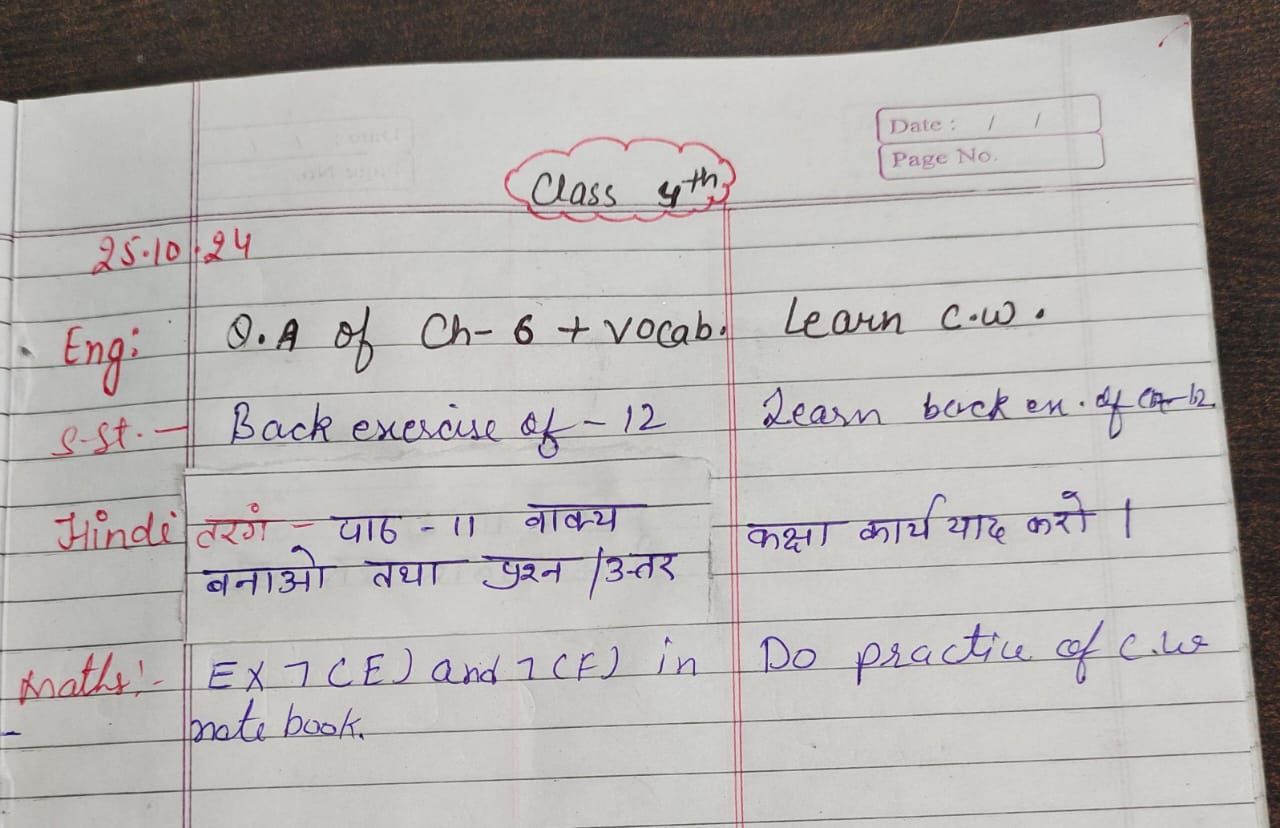 Date : / /
Page No.
Class 4th
25.10.24
Eng: Q.A of Ch- 6 + vocab. Learn c.w.
S.St. — Back exercise of - 12 Learn back ex. of Ch-12.
Hindi तरंग - पाठ - 11 वाक्य कक्षा कार्य याद करो ।
बनाओ तथा प्रश्न / उत्तर
Maths:- EX 7 (E) and 7 (F) in Do practice of c.w
note book.